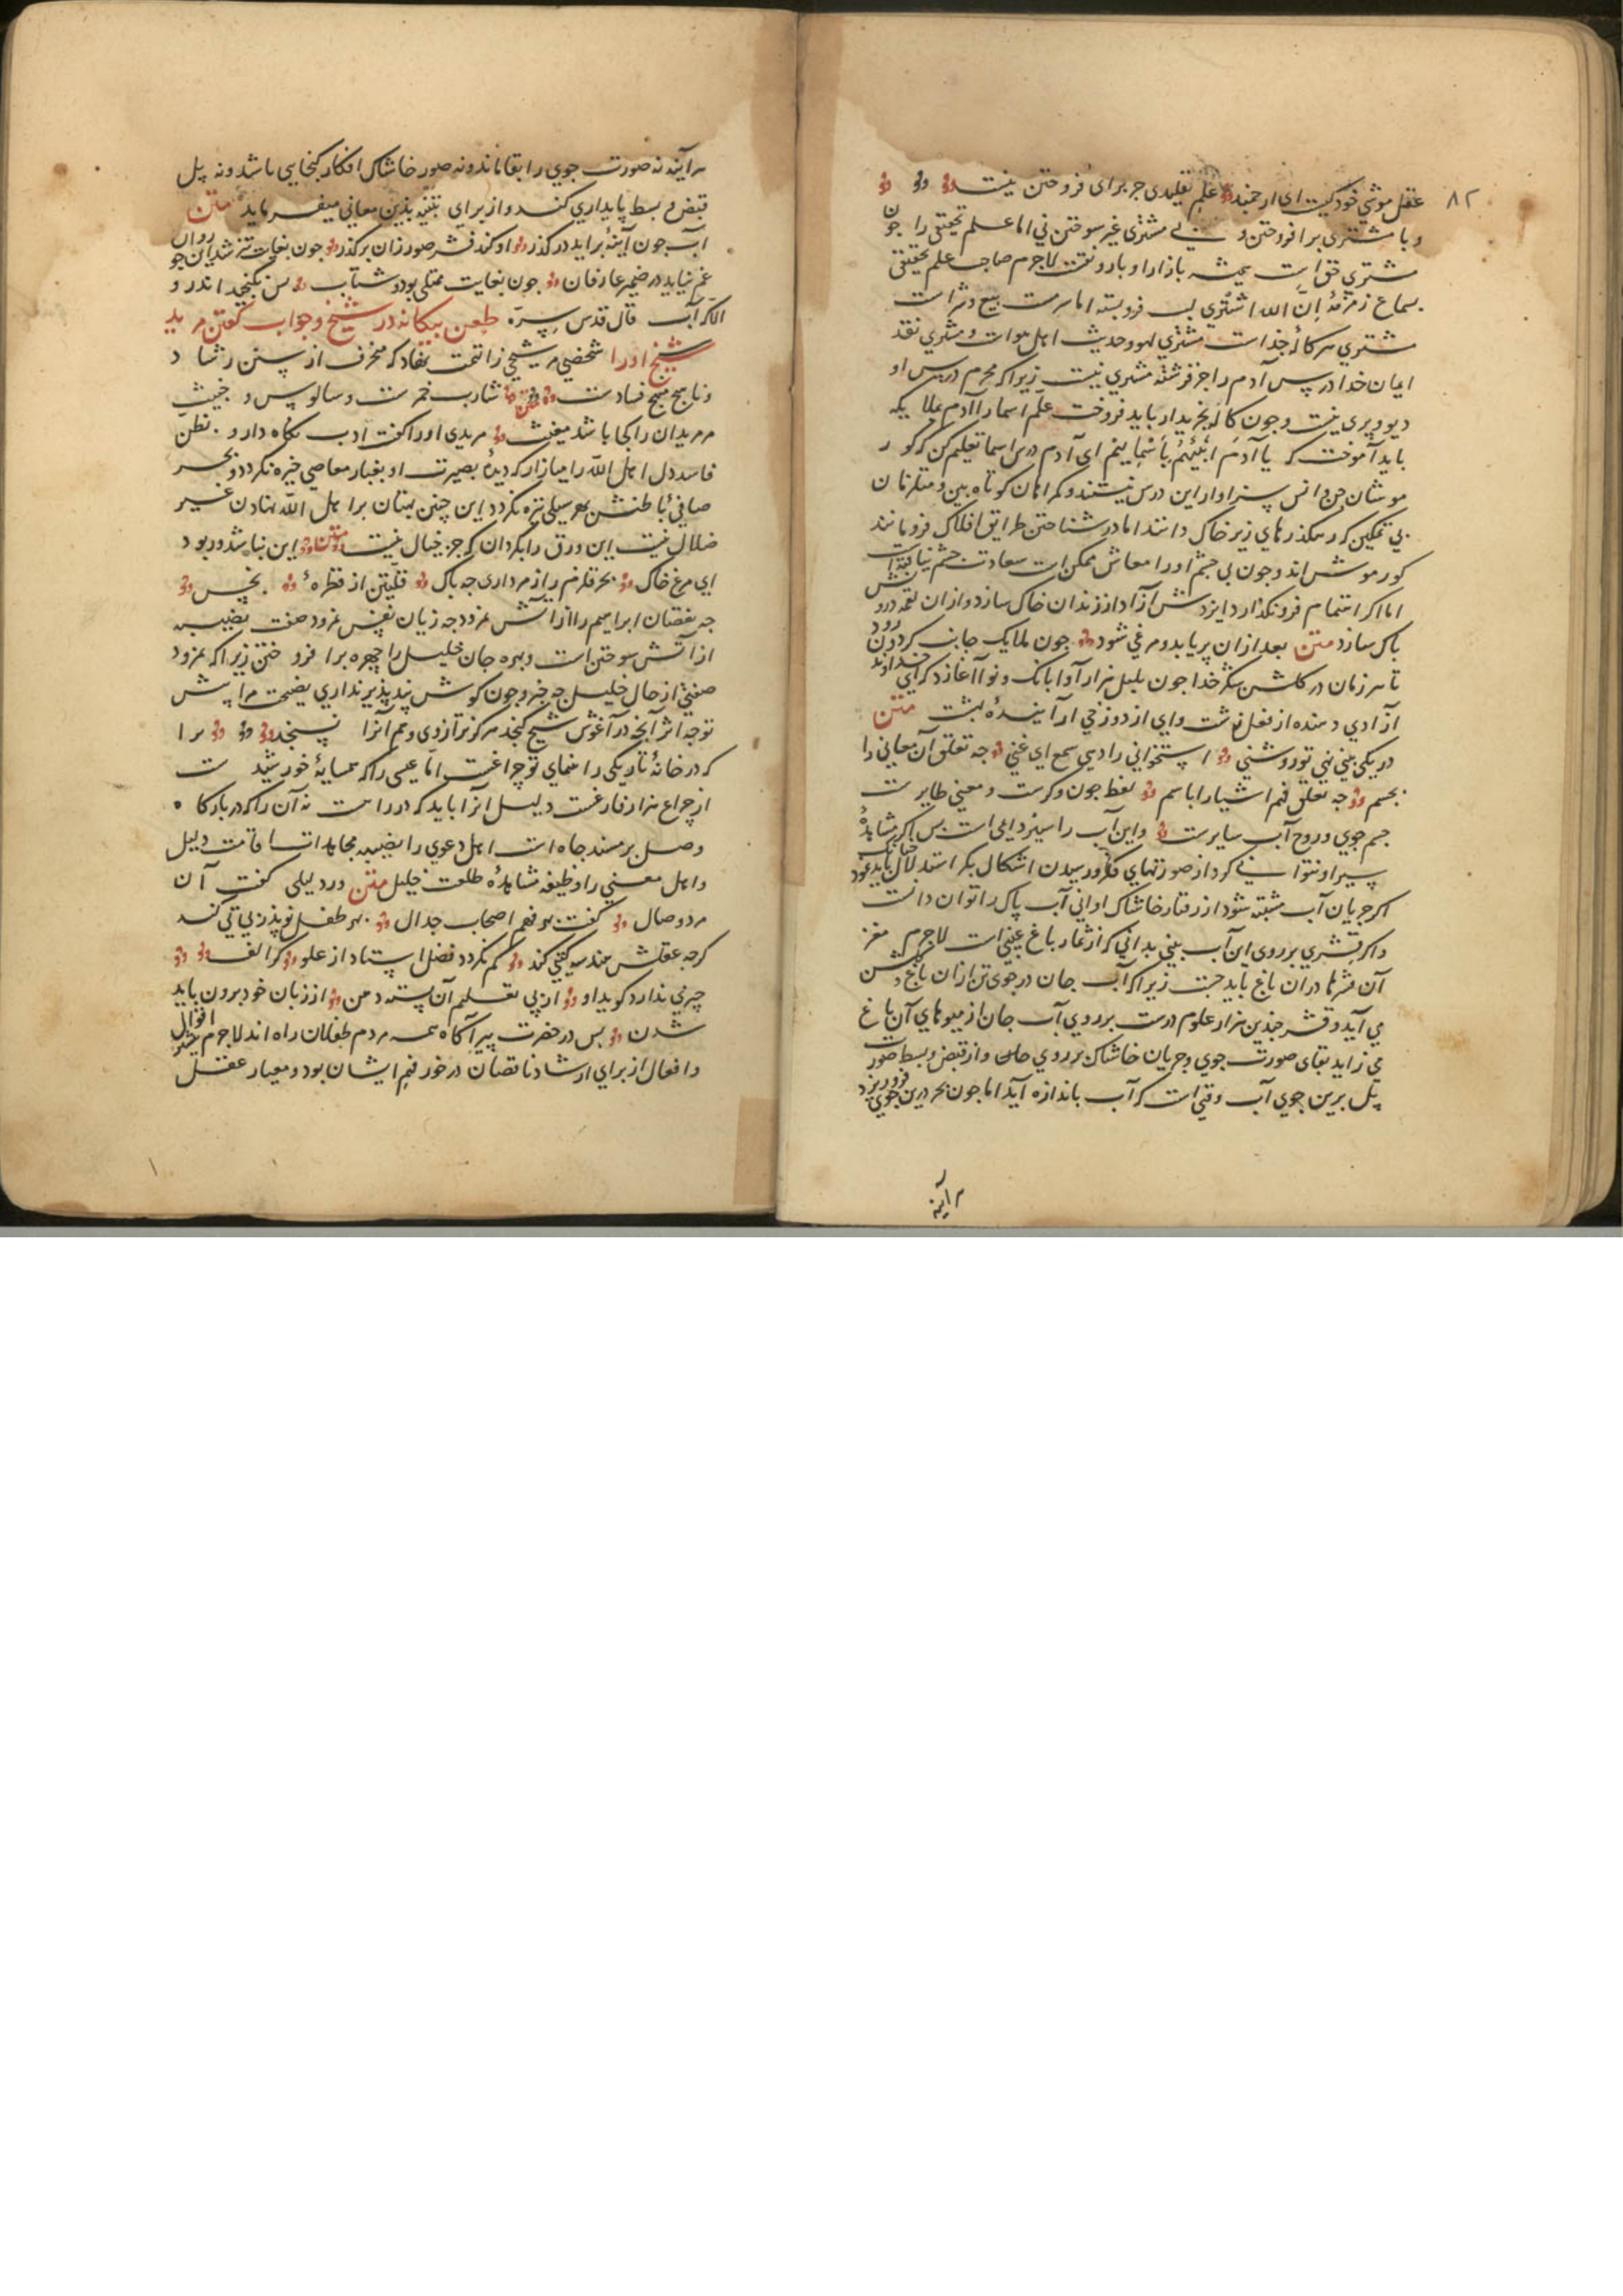 ۸۲
عقل موشی خود کیست ای ارجمند علم تقلیدی جز برای فروختن نیست
و با مشتری برافروختن و بی مشتری غیر سوختن نی اما علم تحقیقی را چون
مشتری حق است همیشه بازار او با رونقست لاجرم صاحب علم تحقیقی
بسماع زمزمهٔ اِنّ الله اشتری لب فرو بسته اما سرمست بیع و شراست
مشتری هر کالٔه خداست مشتری لهو و حدیث اهل هواست و مشتری نقد
ایمان خدا درپس آدم را جز فرشته مشتری نیست زیرا که محرم درس او
دیو و پری نیست و چون کاله بخریدار باید فروخت علّم اسما را آدم ملایکه
باید آموخت که یا آدَم اَنبِئهُم بِاَسْمایِهِم ای آدم درس اسما تعلیم کن که کور
موشان جن و انس سزاوار این درس نیستند و کمراهان کوتاه بین و متلونان
بی تمکین که رهکذرهای زیر خاک دانند اما در شناختن طرایق افلاک فرو مانند
کور موش اند و چون بی چشم او را معاش ممکن است سعادت چشم نیافته است
اما اکر اهتمام فرو نکذارد ایزدش آزاد از زندان خاک سازد و ازان نقمه دزدیش
پاک سازد متن بعد ازان پر یابد و مرغی شود چون ملایک جانب کردون رود
تا هر زمان در کلشن شکر خدا چون بلبل هزار آوا بانک و نوا آغازد که ای خداوند
آزادی دهنده از فعل زشت وای از دوزخی آرایندهٔ بهشت متن
در یکی پیی نهی تو روشنی استخوانی را دهی سمع ای غنی چه تعلق آن معانی را
بجسم چه تعلق فهم اشیا را باسم لفظ چون وکرست و معنی طایرست
جسم جوی و روح آب سایرست و این آب را سیر دایمی است پس اکر مشاهدهٔ
سیر او نتوانی کرد از صورتهای فکر و رسیدن اشکال بکر استدلال باید نمود چنانک
اکر جریان آب مشتبه شود از رفتار خاشاک روانی آب پاک را توان دانست
و اکر قشری بر روی این آب بینی بدانی که از ثمار باغ غیبی است لاجرم مغز
آن قشرها دران باغ باید جست زیرا که آب جان در جوی تن ازان باغ دلکش
می آید و قشر چندین هزار علوم درست بر روی آب جان از میوهای آن باغ
می زاید بقای صورت جوی و جریان خاشاک بر روی جان و از قبض و بسط صورت
پل برین جوی آب وقتی است که آب باندازه آید اما چون بحر درین جوی فرو ریزد
هر آینه
هر آینه نه صورت جوی را بقا ماند و نه صور خاشاک افکار کنجایی باشد و نه پل
قبض و بسط پایداری کند و از برای تنبیه بدین معانی میفرماید متن
آب چون آید برآید در کذر او کند قشر صور زان برکذر چون بغایت تیز شد این جو روان
غم نیاید در ضمیر عارفان چون بغایت ممتلی بود و شتاب پس نکنجد اندرو
الا که آب قال قدس سره طعن بیکانه در شیخ و جواب کفتن مرید
شیخ او را شخصی مر شیخی را تهمت نهاد که منحرف از سنن رشاد
و ناهج منهج فسادست متن شارب خمرست و سالوس و خبیث
مر مریدان را کجا باشد مغیث مریدی او را کفت ادب نکاه دار و بظنّ
فاسد دل اهل اللّه را میازار که دیدهٔ بصیرت او بغبار معاصی خیره نکردد و بحر
صافیٔ باطنش بهر سیلی تیره نکردد این چنین بهتان بر اهل اللّه نهادن غیر
ضلال نیست این ورق را بکردان که جز خیال نیست متن این نباشد ور بود
ای مرغ خاک بحر قلزم را ز مرداری چه باک قلّتین از قطرهٔ نجس
چه نقصان ابراهیم را از آتش نمرود چه زیان نفس نمرود صفت نصیب
از آتش سوختن است و بهره جان خلیل را چهره برافروختن زیرا که نمرود
صفتی از حال خلیل چه خبر و چون کوش پند پذیر نداری نصیحت مرا پیش
توجه اثر آنچه در آغوش شیخ کنجد هر کز ترازوی وهم آنرا نسنجد مرا
که در خانهٔ تاریکی راهنمای تو چراغست اما عیسی را که همسایهٔ خورشیدست
از چراغ هزار فارغست دلیل آنرا باید که در راهست نه آن را که در بارکاه
وصل بر مسند جاه است اهل دعوی را نصیب مجاهدات اقامت دلیل
و اهل معنی را وظیفه مشاهدهٔ طلعت خلیل متن ور دلیلی کفت آن
مرد وصال کفت بهر فهم اصحاب جدال بهر طفل نو پدر تی تی کند
کرچه عقلش هندسه کیتی کند کم نکردد فضل استاد از علو کر الف
چیزی ندارد کوید او از پی تعلیم آن بسته دهن از زبان خود برون باید
شدن پس در حضرت پیر آکاه همه مردم طفلان راه اند لاجرم اقوال شیخ
و افعال از برای ارشاد ناقصان در خور فهم ایشان بود و معیار عقل